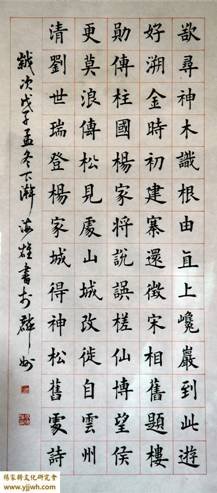 欲尋神木識根由直上巉巖到此遊
好溯金時初建寨還徵宋相舊題樓
勛傳柱國楊家將說誤槎仙博望侯
更莫浪傳松見處山城改徙自雲州
清劉世瑞登楊家城得神松舊處詩
歲次戊子孟冬下澣海雄書於麟州
楊家將文化研究會
www.yjjwh.com